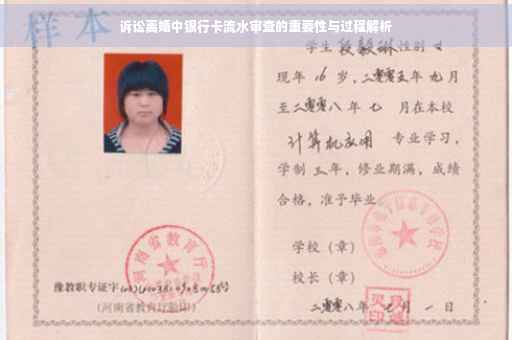 诉讼离婚中银行卡流水审查的重要性与过程解析
样本
学生 段毅琳 性别 女
现年 16 岁，二零零五年 九 月
至二零零八 年 七 月在本校
计算机应用 专业学习，
学制 三 年，修业期满，成绩
合格，准予毕业
学校（章）
校长（章）
二零零八 年 月 一 日
河南省教育厅
豫教职专证字
（河南省教育厅验印）